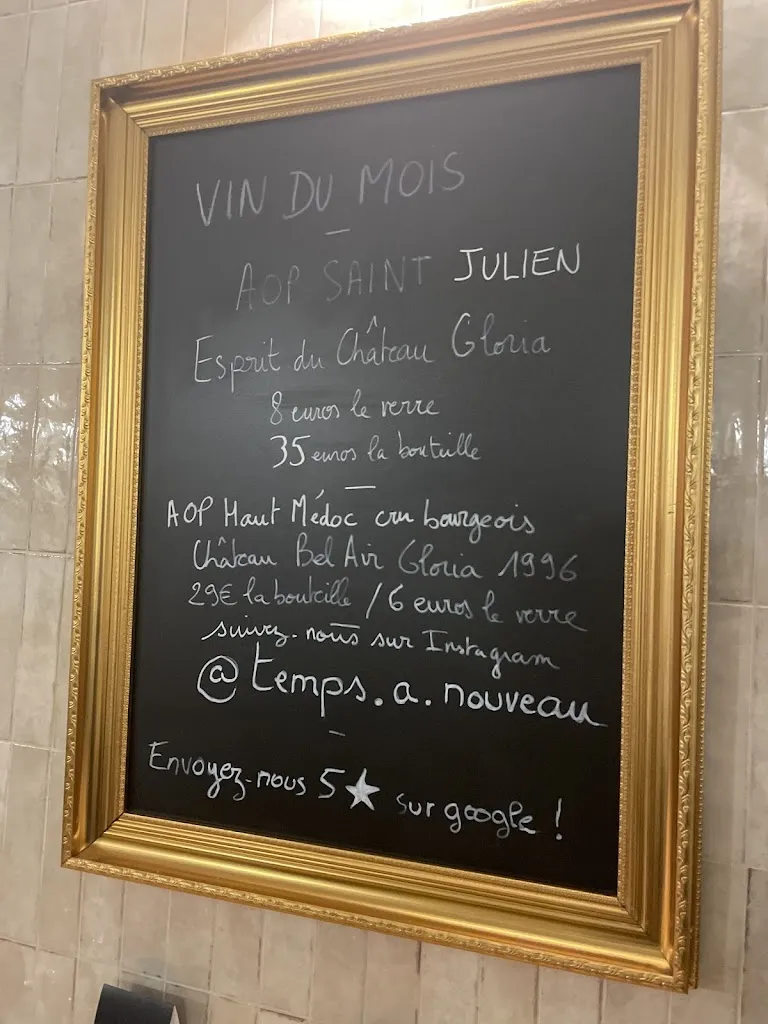 VIN DU MOIS
AOP SAINT JULIEN
Esprit du Château Gloria
8 euros le verre
35 euros la bouteille
AOP Haut Médoc cru bourgeois
Château Bel Air Gloria 1996
29€ la bouteille / 6 euros le verre
suivez-nous sur Instagram
@temps.a.nouveau
Envoyez-nous 5★ sur google !